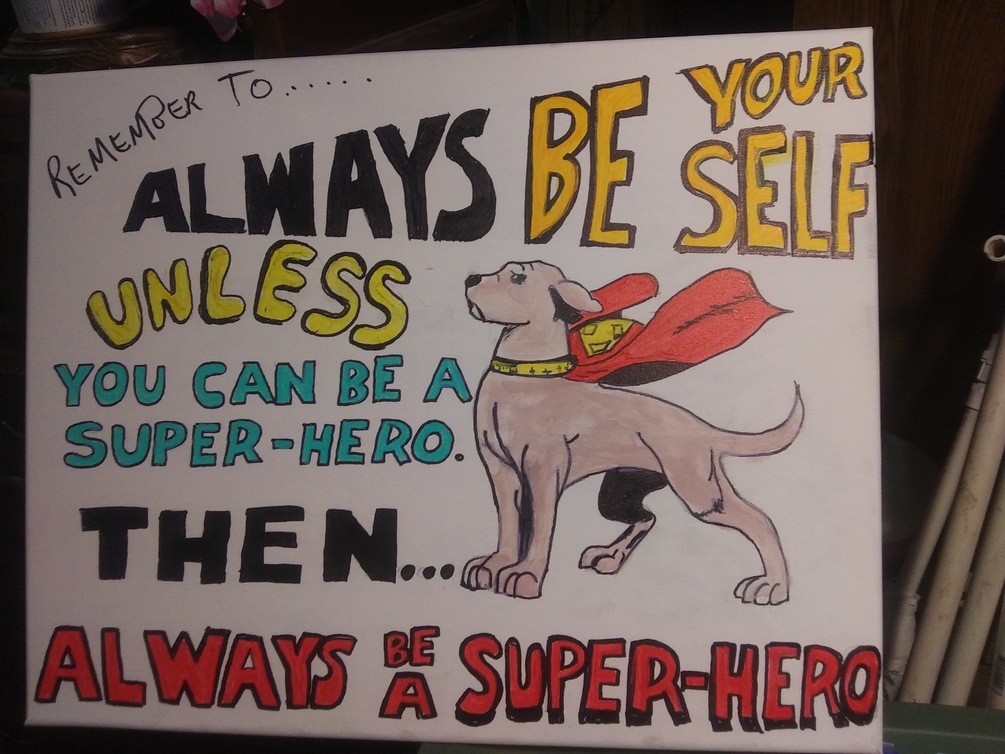 REMEMBER TO......
ALWAYS BE YOUR SELF
UNLESS
YOU CAN BE A
SUPER-HERO.
THEN...
ALWAYS BE A SUPER-HERO